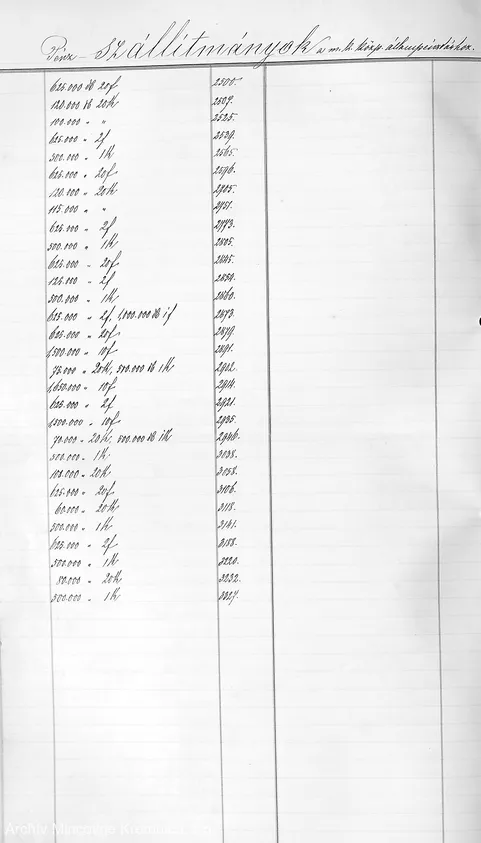 Pénz-szállítmányok a m. k. közp. állampénztárhoz.
625.000 db 20f 2500.
120.000 db 20K 2507.
100.000 " " 2525.
625.000 " 2f 2539.
500.000 " 1K 2565.
625.000 " 20f 2596.
120.000 " 20K 2705.
115.000 " " 2751.
625.000 " 2f 2773.
500.000 " 1K 2805.
625.000 " 20f 2845.
125.000 " 2f 2859.
500.000 " 1K 2860.
625.000 " 2f, 1,000.000 db 1f 2873.
625.000 " 20f 2879.
1,500.000 " 10f 2891.
75.000 " 20K, 500.000 db 1K 2902.
1,650.000 " 10f 2914.
625.000 " 2f 2921.
1,800.000 " 10f 2935.
70.000 " 20K, 500.000 db 1K 2946.
500.000 " 1K 3038.
100.000 " 20K 3058.
625.000 " 20f 3106.
60.000 " 20K 3118.
500.000 " 1K 3141.
625.000 " 2f 3188.
500.000 " 1K 3220.
80.000 " 20K 3232.
500.000 " 1K 3327.